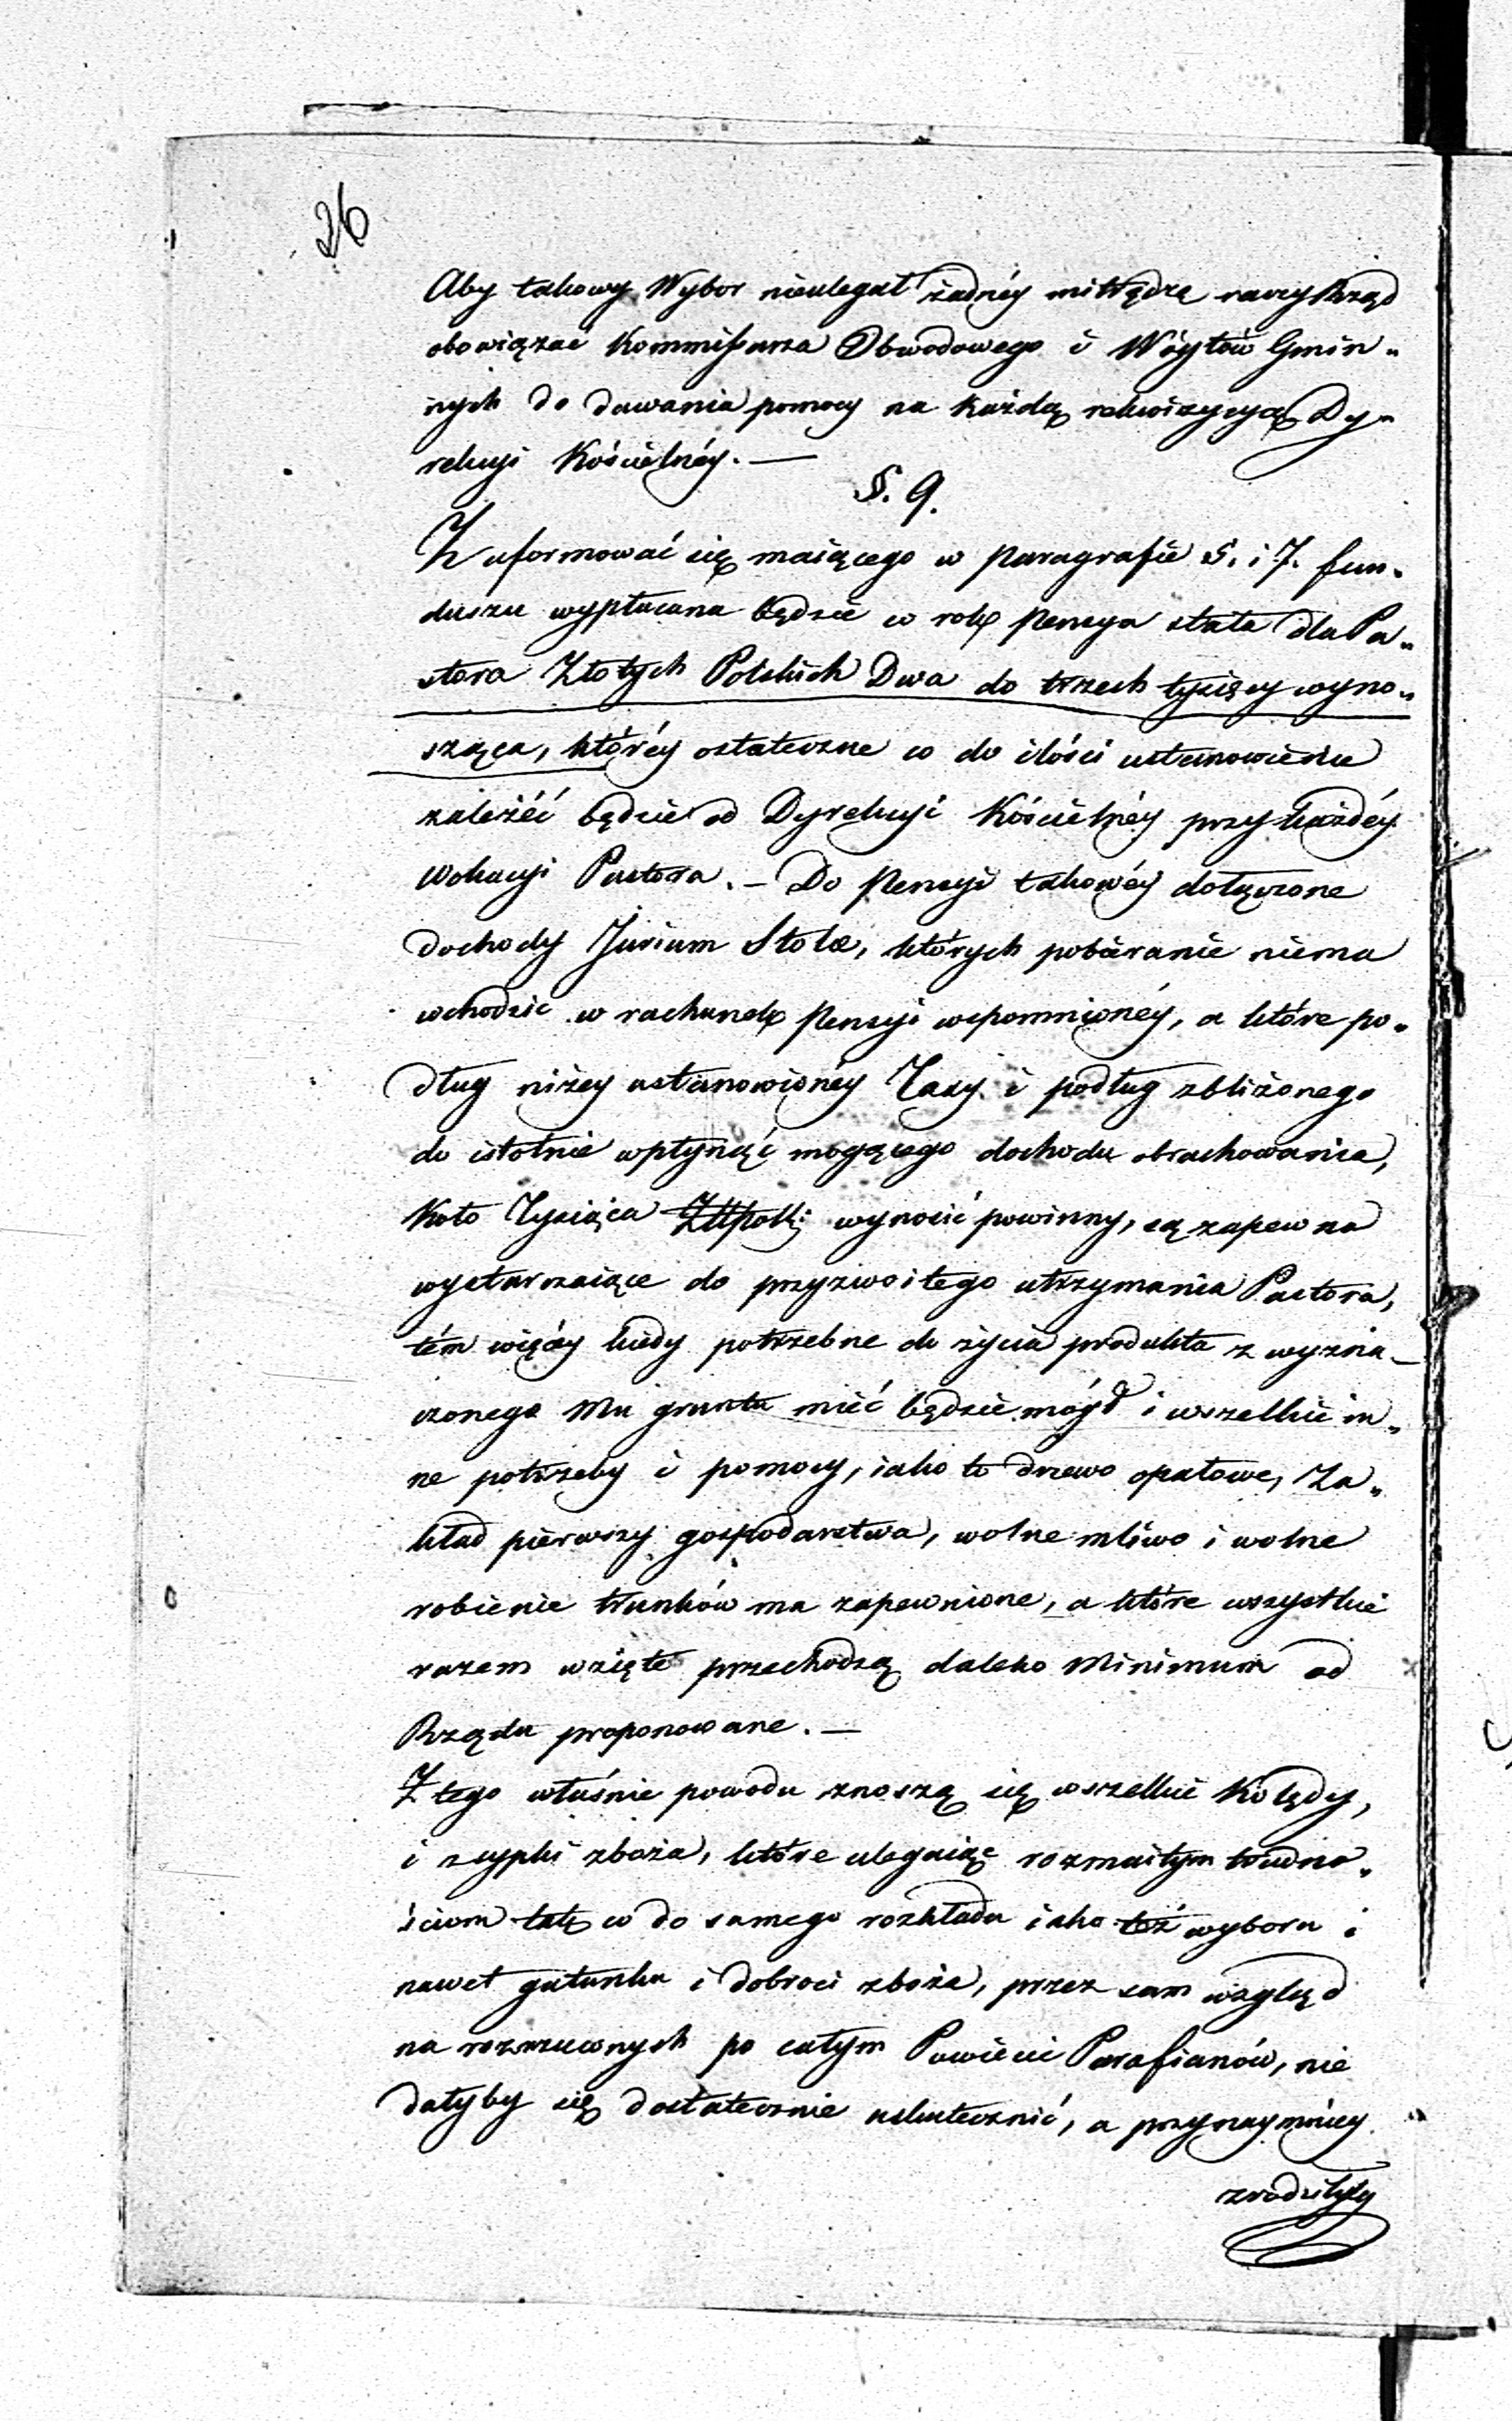 26
Aby takowy Wybor nieulegał żadnéy mitrędze raczy Rząd
obowiązać Kommissarza Obwodowego i Wóytów Gmin„
nych do dawania pomocy na każdą rekwizycyą Dy„
rekcyi Kościelnéy. —
§. 9.
Z uformować się maiącego w Paragrafie 5. i 7. fun„
duszu wypłacana będzie w rok Pensya stała dla Pa„
stora Złotych Polskich Dwa do trzech tysięcy wyno„
sząca, któréy ostateczne co do ilości ustanowienie
zależéć będzie od Dyrekcyi Kościelnéy przy każdéy
Wokacyi Pastora. — Do Pensyi takowéy dołączone
dochody Jurium Stolæ, których pobieranie niema
wchodzic w rachunek Pensyi wspomnionéy, a które po„
dług niżey ustanowionéy Taxy i podług zbliżonego
do istotnie wpłynąć mogącego dochodu obrachowania,
Koło Tysiąca Złlpolk: wynosić powinny, są zapewna
wystarczaiące do przyzwoitego utrzymania Pastora,
tém więcéy kiedy potrzebne do życia produkta z wyzna—
czonego Mu gruntu mieć będzie mógł i wszelkie in„
ne potrzeby i pomocy, iako to drzewo opałowe, Za„
kład pierwszy gospodarstwa, wolne mliwo i wolne
robienie trunków ma zapewnione, a które wszystkie
razem wzięte przechodzą daleko Minimum od
Rządu proponowane. —
Z tego właśnie powodu znoszą się wszelkie Kolędy,
i sypki zboża, które ulegaiąc rozmaitym trudno„
ściom tak co do samego rozkładu iako też wyboru i
nawet gatunku i dobroci zboża, przez sam wzgląd
na rozrzuconych po całym Powiecie Parafianów, nie
dałyby się dostatecznie uskutecznić, a przynaymniey
zrodziłyby